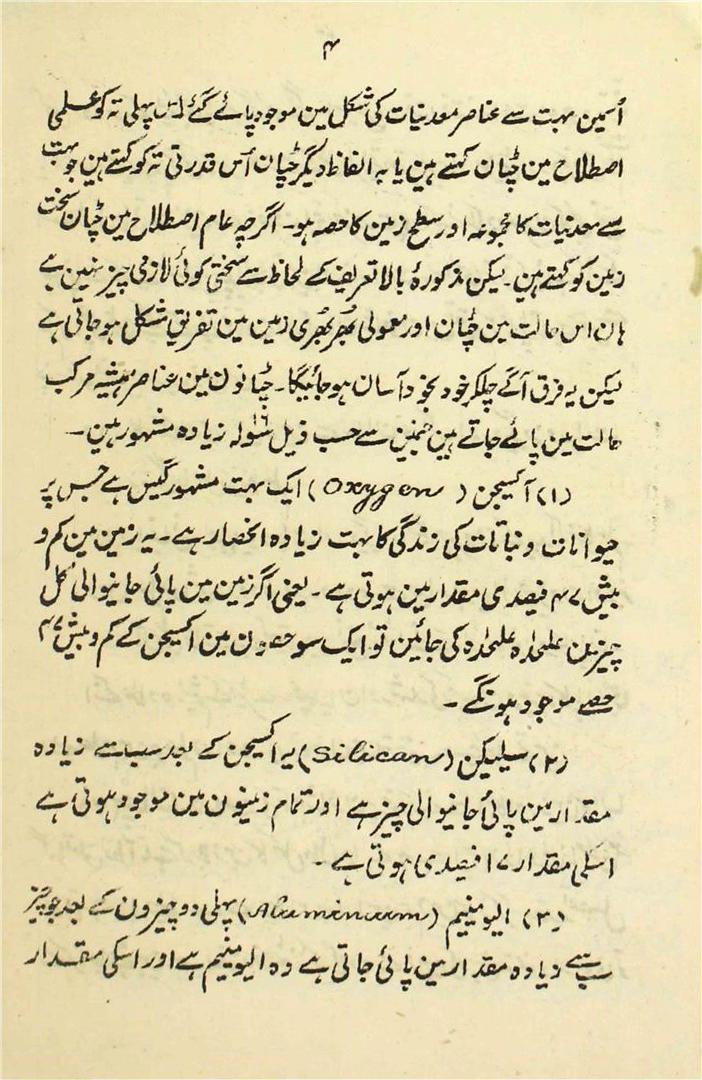 ۴
اُسمین بہت سے عناصر معدنیات کی شکل مین موجود پائے گئے اس پہلی تہ کو علمی
اصطلاح مین چٹان کہتے ہین یا بہ الفاظ دیگر چٹان اُس قدرتی تہ کو کہتے ہین جو بہت
سے معدنیات کا مجموعہ اور سطح زمین کا حصہ ہو۔ اگرچہ عام اصطلاح مین چٹان سخت
زمین کو کہتے ہین۔ لیکن مذکورۂ بالا تعریف کے لحاظ سے سختی کوئی لازمی چیز نہین ہے
ہان اس حالت مین چٹان اور معمولی بھُر بھُری زمین مین تفریق مشکل ہو جاتی ہے
لیکن یہ فرق آگے چلکر خود بخود آسان ہو جائیگا۔ چٹانون مین عناصر ہمیشہ مرکب
حالت مین پائے جاتے ہین جنمین سے حسب ذیل سولہ زیادہ مشہور ہین۔
(۱) آکسیجن (Oxygen) ایک بہت مشہور گیس ہے جس پر
حیوانات و نباتات کی زندگی کا بہت زیادہ انحصار ہے۔ یہ زمین مین کم و
بیش ۴۷ فیصدی مقدار مین ہوتی ہے۔ یعنی اگر زمین مین پائی جانیوالی کُل
چیزین علحٰدہ علحٰدہ کی جائین تو ایک سو حصون مین اکسیجن کے کم و بیش ۴۷
حصے موجود ہونگے۔
(۲) سیلیکن (Silican) یہ اکسیجن کے بعد سب سے زیادہ
مقدار مین پائی جانیوالی چیز ہے اور تمام زمینون مین موجود ہوتی ہے
اسکی مقدار ۱۷ فیصدی ہوتی ہے۔
(۳) الیومنیم (Aluminum) پہلی دو چیزون کے بعد جو چیز
سب سے زیادہ مقدار مین پائی جاتی ہے وہ الیومنیم ہے اور اسکی مقدار